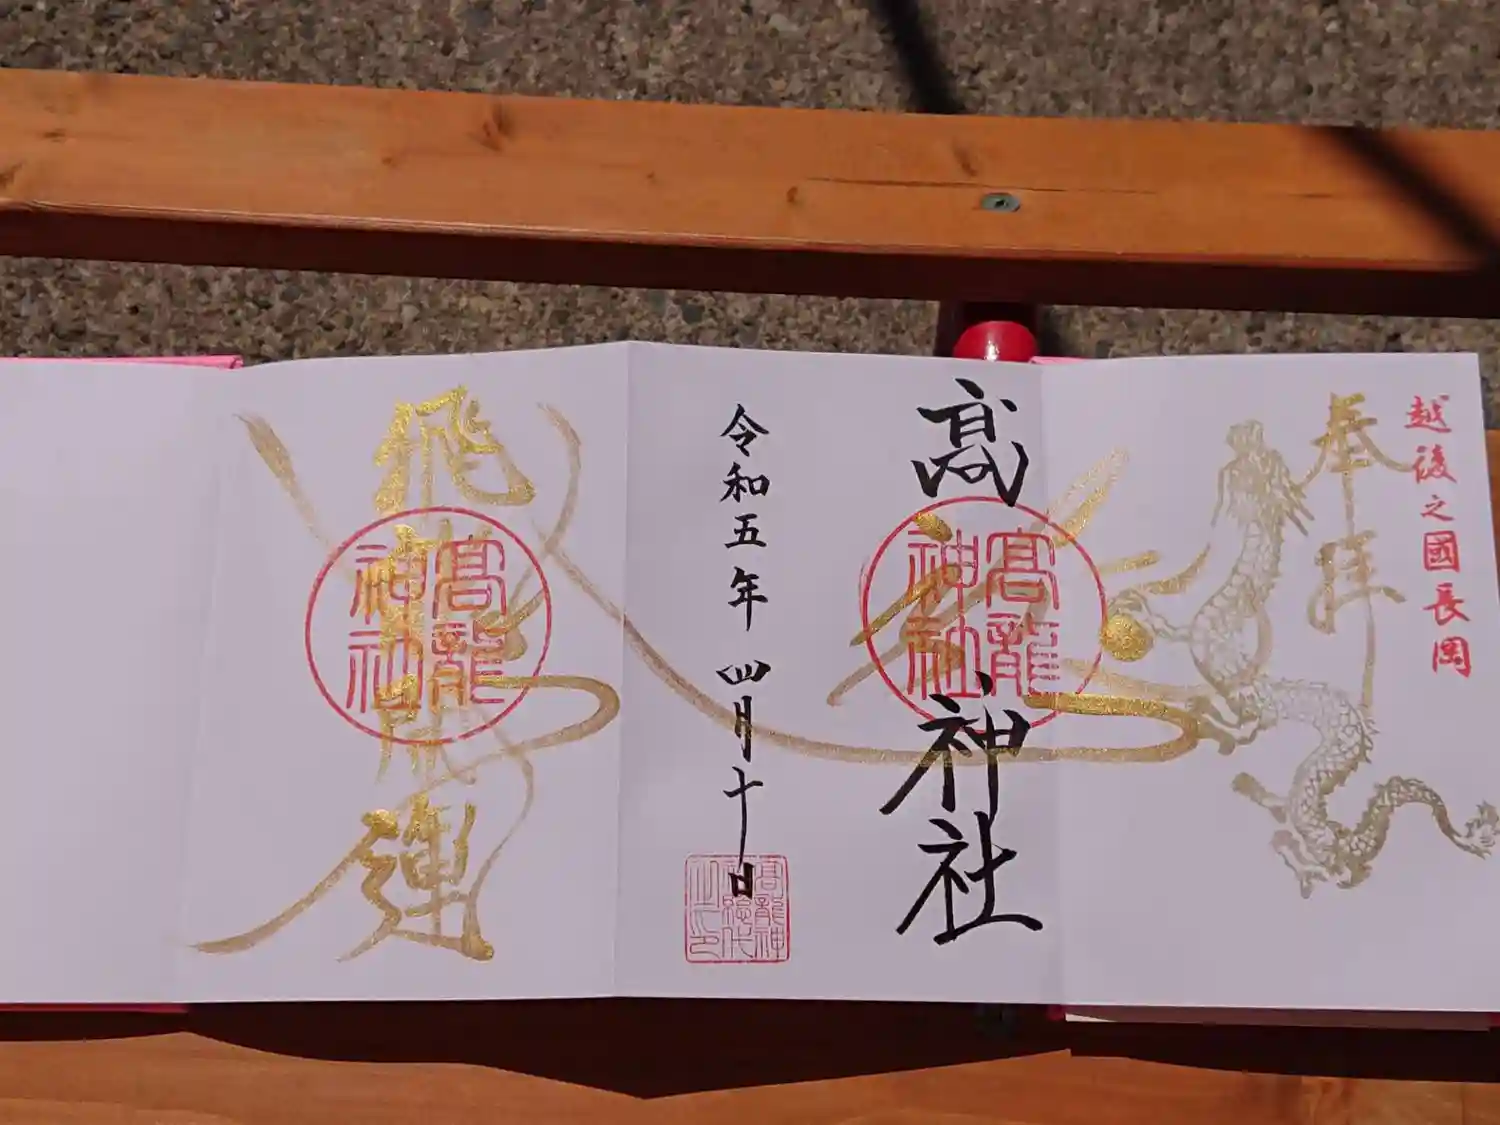 越後之國長岡
奉拝
髙龍神社
髙龍神社
令和五年四月十日
飛龍開運
髙龍神社